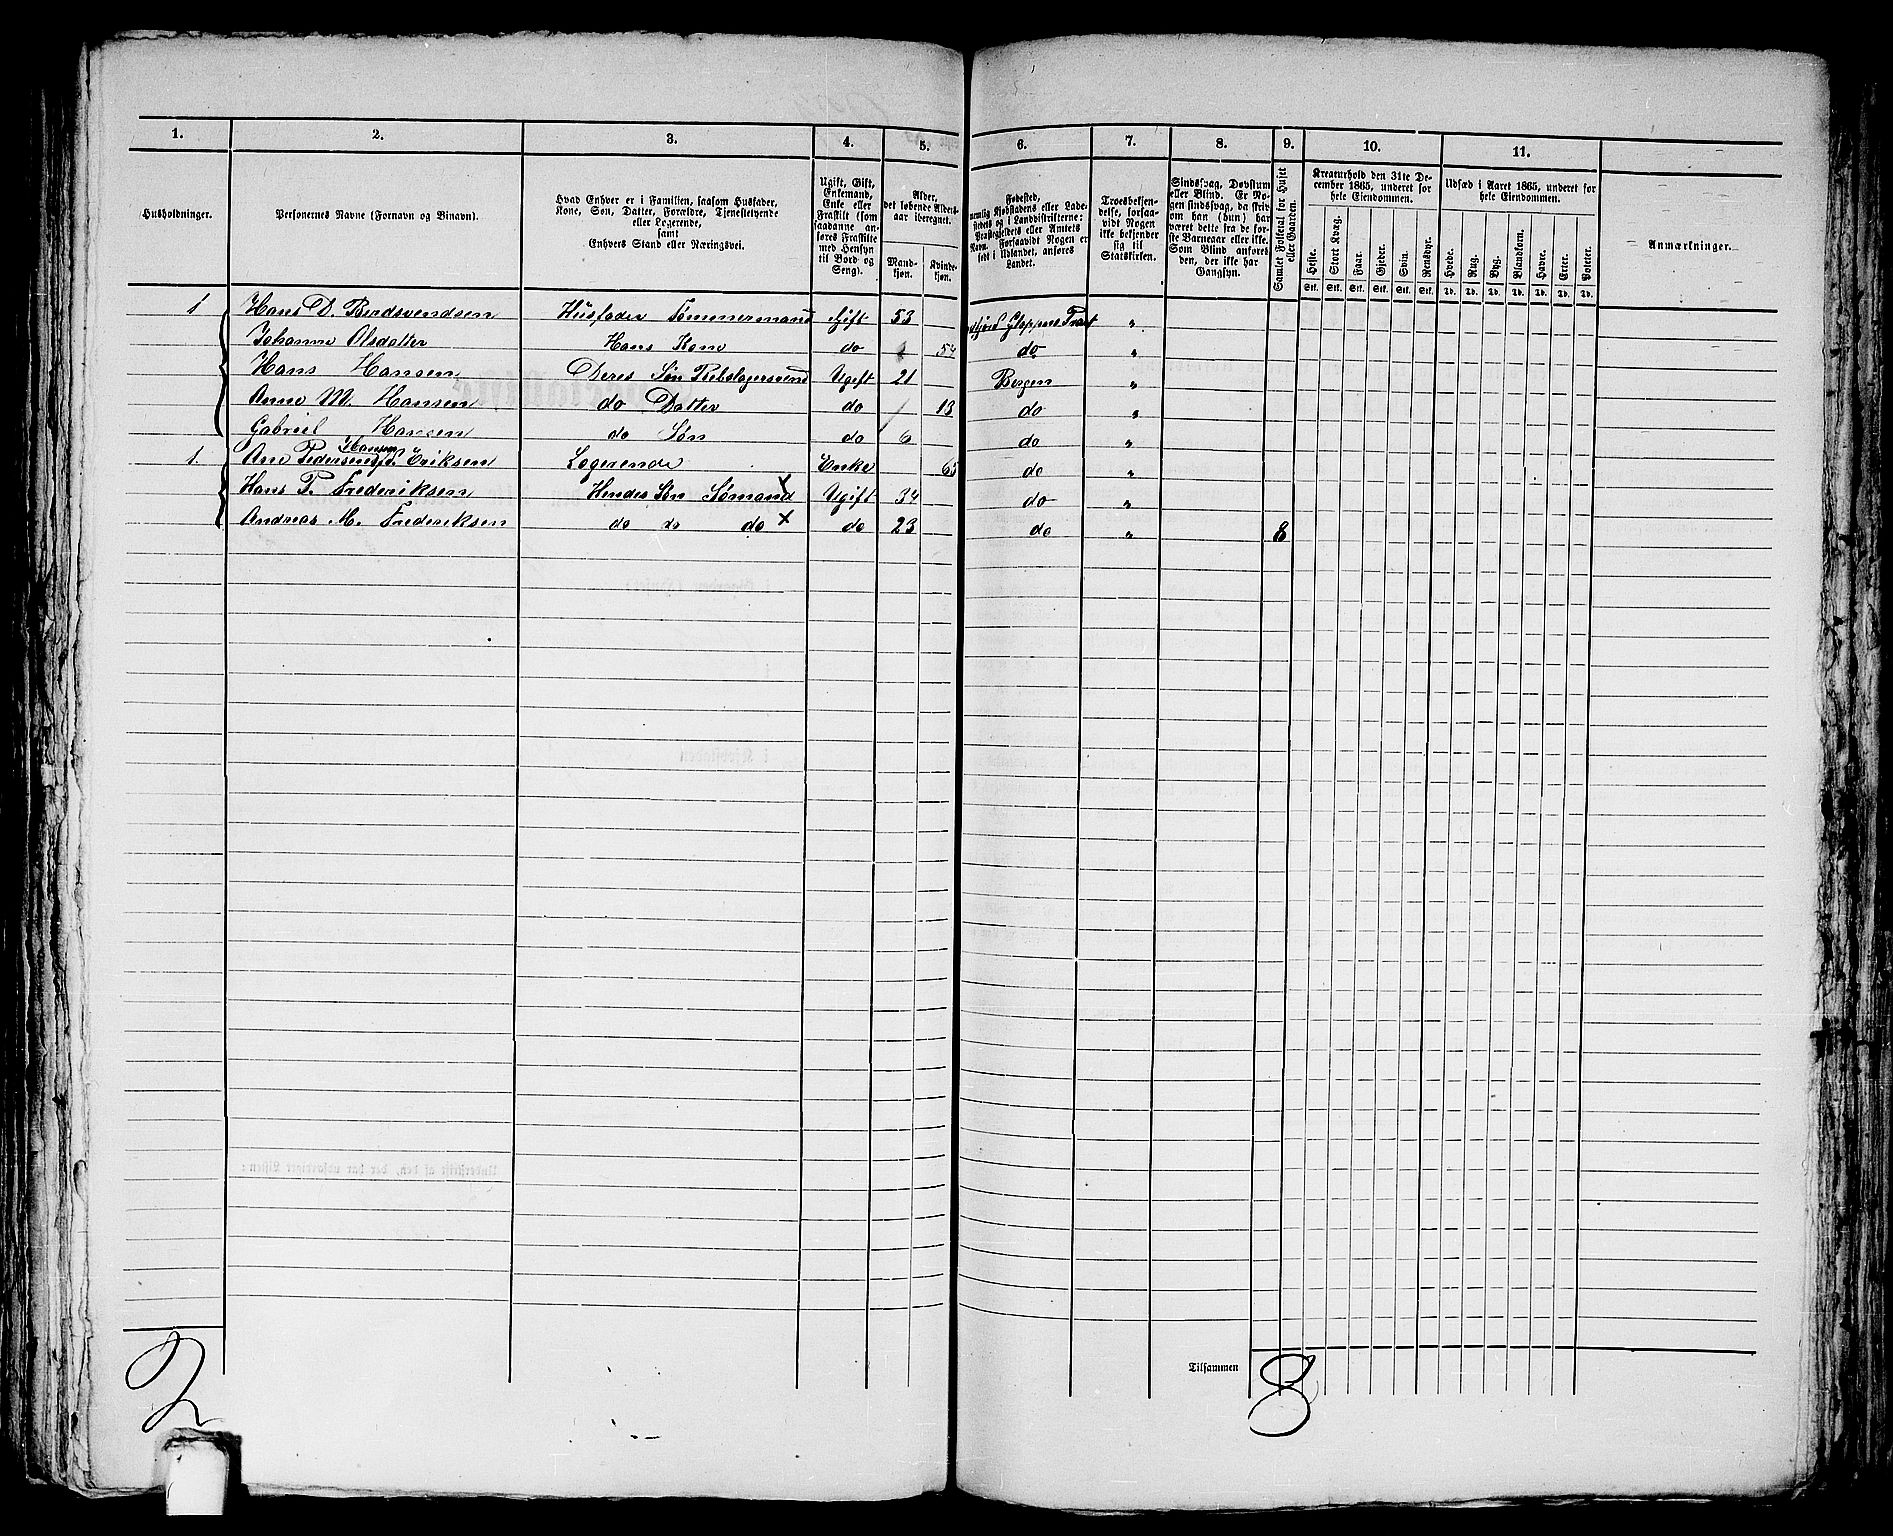 1. 2. 3. 4. 5. 6. 7. 8. 9. 10. 11.
Husholdninger.
Personernes Navne (Fornavn og Binavn).
Hvad Enhver er i Familien, saasom Husfader,
Kone, Søn, Datter, Forældre, Tjenestetyende
eller Logerende,
samt
Enhvers Stand eller Næringsvei.
Ugift, Gift,
Enkemand,
Enke eller
Fraskilt (som
saadanne an-
føres Fraskilte
med Hensyn
til Bord og
Seng).
Alder,
det løbende Alders-
aar iberegnet.
Mand-
kjøn.
Kvinde-
kjøn.
Fødested,
nemlig Kjøbstadens eller Lade-
stedets og i Landdistrikterne:
Præstegjeldets eller Amtets
Navn. Forsaavidt Nogen er
født i Udlandet, anføres
Landet.
Troesbekjen-
delse, forsaa-
vidt Nogen
ikke bekjender
sig til
Statskirken.
Sindssvag, Døvstum
eller Blind. Er No-
gen sindssvag, da skriv
om han (hun) har
været dette fra de før-
ste Barneaar eller ikke.
Som Blind anføres
den, der ikke har
Gangsyn.
Samlet Folketal for Huset
eller Gaarden.
Kreaturhold den 31te De-
cember 1865, underet for
hele Eiendommen.
Heste. Stort Kvæg. Faar. Gjeder. Svin. Rensdyr.
Stk. Stk. Stk. Stk. Stk. Stk.
Udsæd i Aaret 1865, underet for
hele Eiendommen.
Hvede. Rug. Byg. Blandkorn. Havre. Erter. Poteter.
Td. Td. Td. Td. Td. Td. Td.
Anmærkninger.
1 Hans D. Berdsvendsen Husfader Tømmermand Gift 53 "
Johanne Olsdatter Hans Kone do 54 do "
Hans Hansen Deres Søn Rebslagersvend Ugift 21 Bergen "
Anne M. Hansen do Datter do 13 do "
Gabriel Hansen do Søn do 6 do "
Hansen
1. Ane Pedersen Eriksen Logerende Enke 65 do "
Hans P. Frederiksen Hendes Søn Sømand x Ugift 34 do "
Andreas M. Frederiksen do do do x do 23 do " 8
Tilsammen
2 8